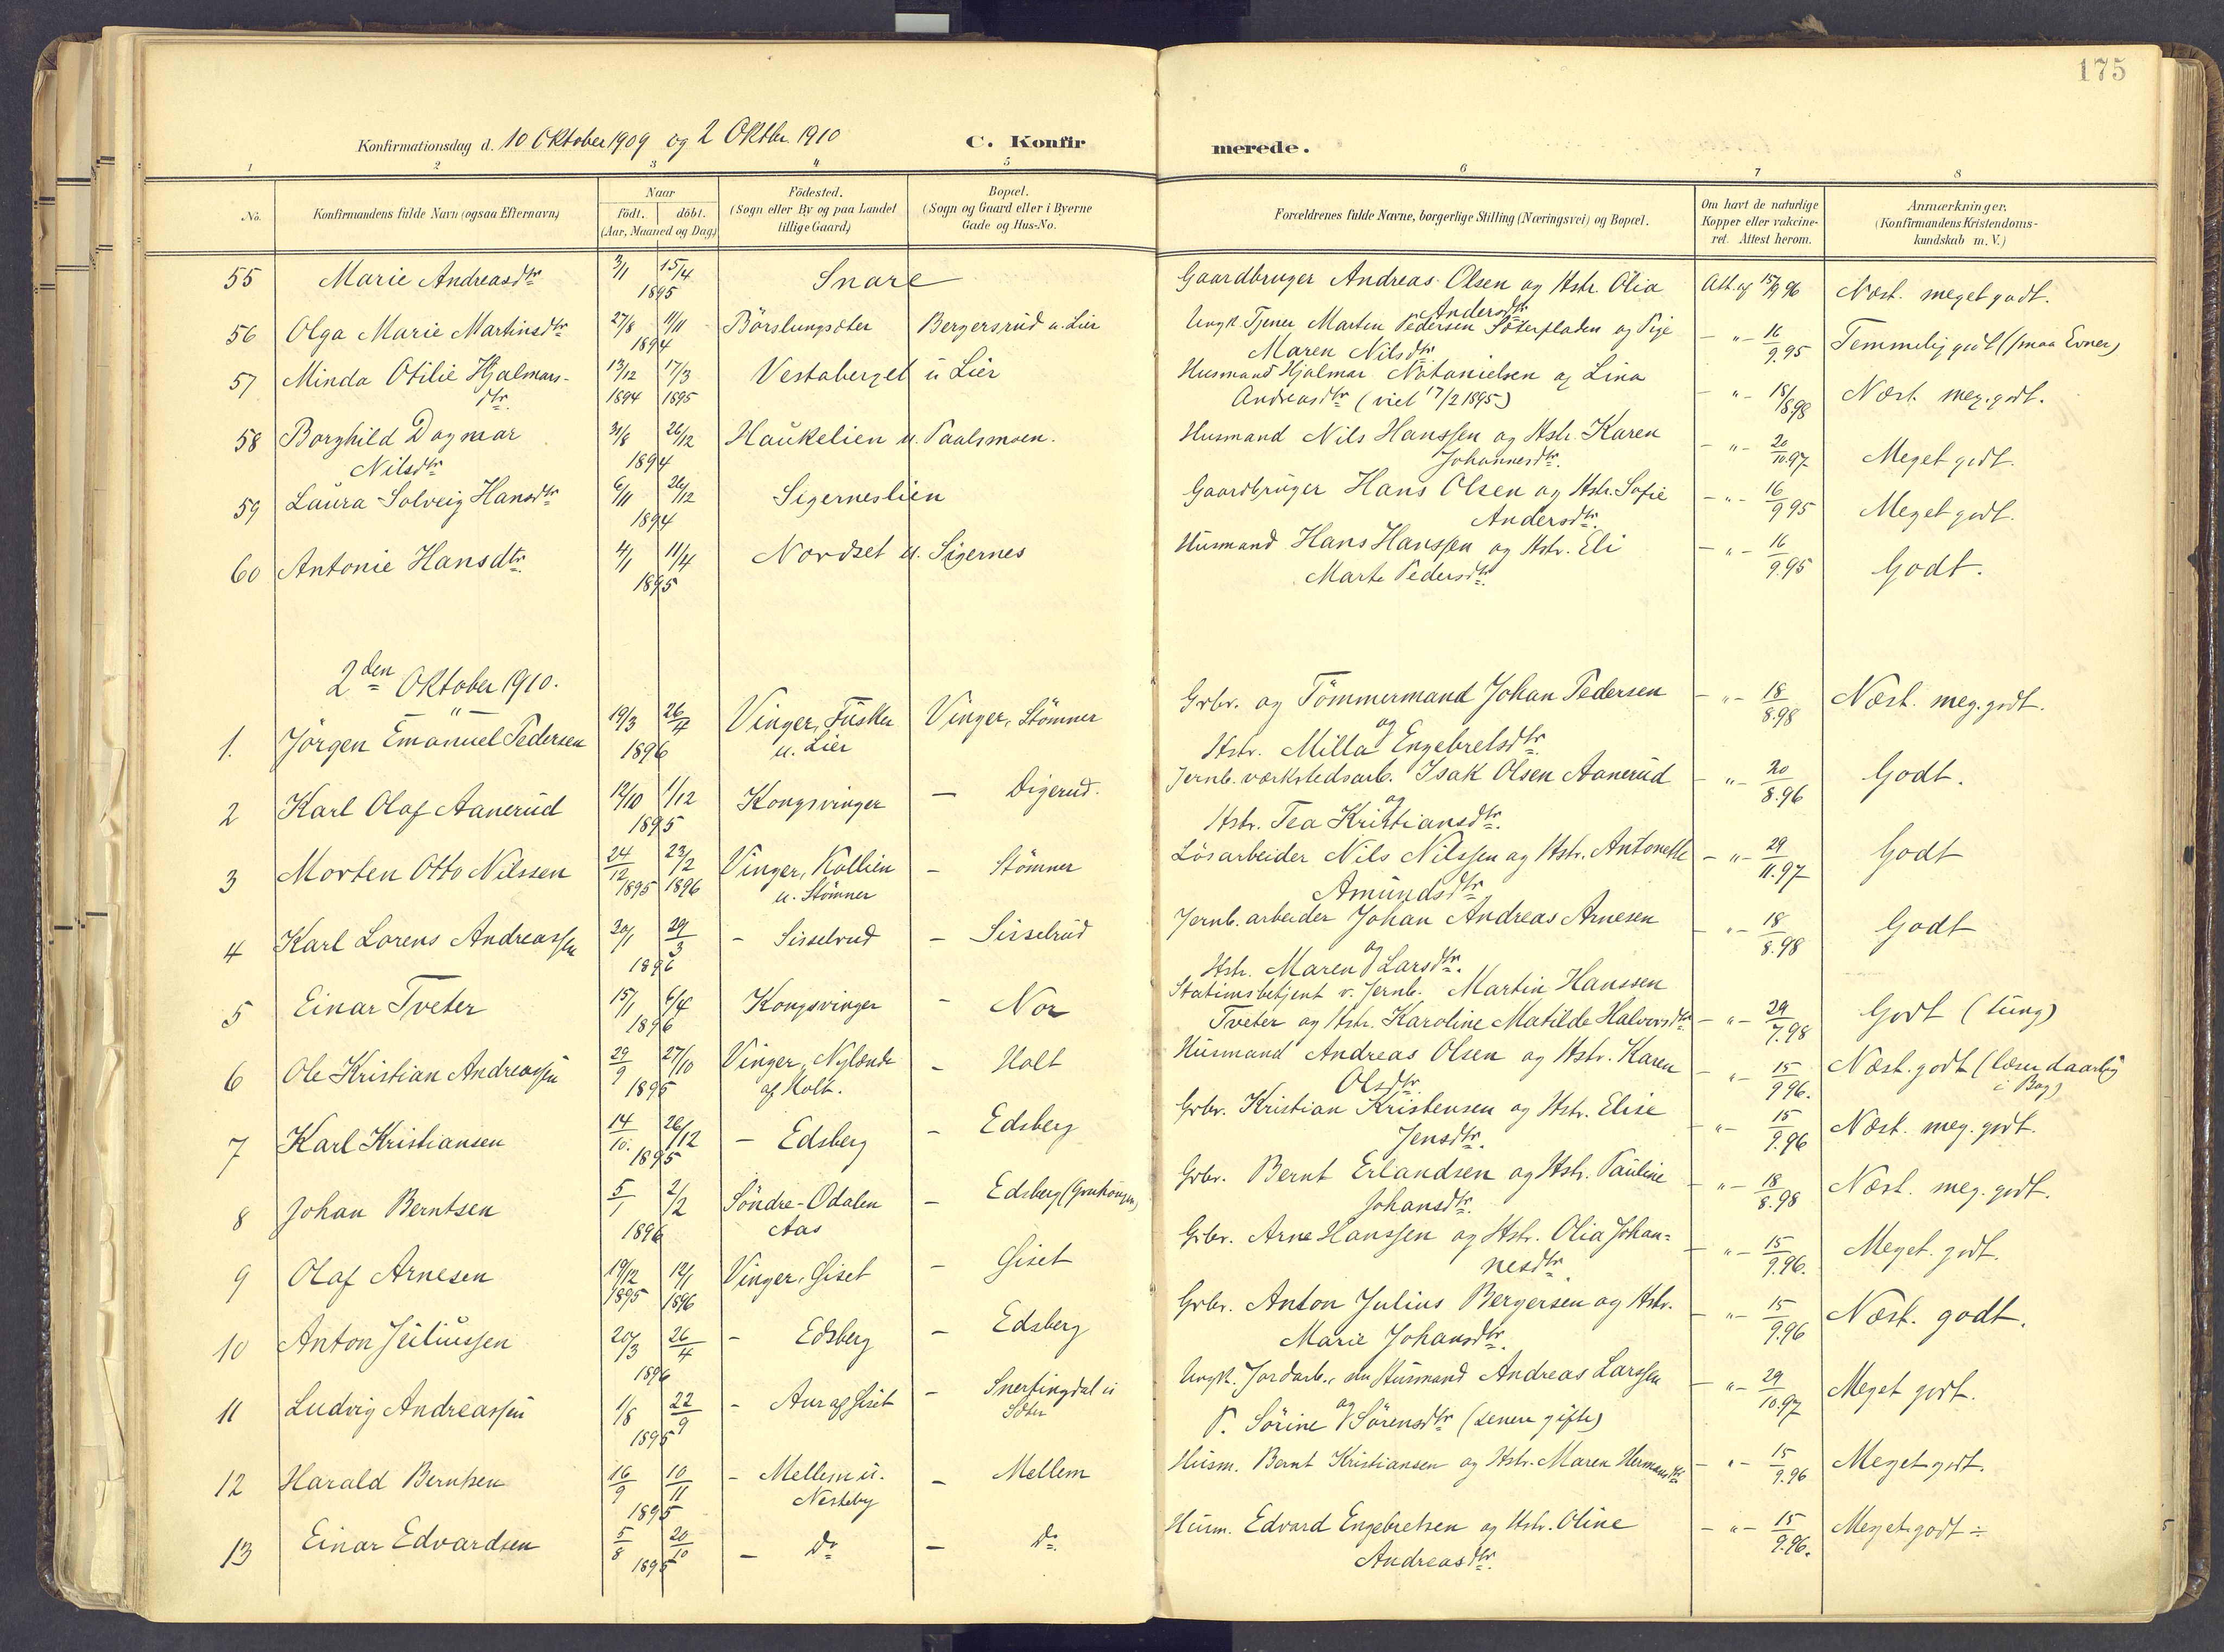 175
Konfirmationsdag d. 10 Oktober 1909 og 2 Oktbr. 1910
C. Konfirmerede.
1 2 3 4 5 6 7 8
No. Konfirmandens fulde Navn (ogsaa Efternavn) Naar födt. döbt. (Aar, Maaned og Dag) Födested. (Sogn eller By og paa Landet tillige Gaard) Bopæl. (Sogn og Gaard eller i Byerne Gade og Hus-No. Forældrenes fulde Navne, borgerlige Stilling (Næringsvei) og Bopæl. Om havt de naturlige Kopper eller vakcineret. Attest herom. Anmærkninger. (Konfirmandens Kristendomskundskab m. V.)
55 Marie Andreasdtr 3/1 15/4 1895 Snare Gaardbruger Andreas Olsen og Hstr. Olia Andersdtr Att. af 15/9 96 Næst. meget godt.
56 Olga Marie Martinsdtr 27/8 11/11 1894 Börslungsæter Bergersrud u. Lier Ungk. Tjener Martin Pedersen Sæterpladen og Pige Maren Nilsdtr -"- 16/9.95 Temmelig godt (smaa Evner)
57 Minda Otilie Hjalmarsdtr. 13/12 1894 17/3 1895 Vestaberget u Lier Husmand Hjalmar Natanielsen og Lina Andreasdtr (viet 17/2 1895) -"- 18/8.98 Næst. meg. godt.
58 Borghild Dagmar Nilsdtr 31/8 26/12 1894 Haukelien u. Paalsmoen. Husmand Nils Hanssen og Hstr. Karen Johannesdtr. -"- 20/10.97 Meget godt.
59 Laura Solveig Hansdtr 6/11 26/12 1894 Sigerneslien Gaardbruger Hans Olsen og Hstr. Sofie Andersdtr. -"- 16/9 95 Meget godt.
60 Antonie Hansdtr. 4/1 11/4 1895 Nordset u. Sigernes Husmand Hans Hanssen og Hstr. Eli Marte Pedersdtr. -"- 16/9.95 Godt.
2den Oktober 1910.
1. Jörgen Emanuel Pedersen 19/3 26/4 1896 Vinger, Fusker u. Lier Vinger, Stömner Grbr. og Tömmermand Johan Pedersen og Hstr. Milla Engebretsdtr. -"- 18/8.98 Næst. meg. godt.
2 Karl Olaf Aanerud 12/10 1/12 1895 Kongsvinger - Digerud. Jernb. værkstedsarb. Isak Olsen Aanerud og Hstr. Tea Kristiansdtr. -"- 20/8.96 Godt.
3 Morten Otto Nilssen 24/12 1895 23/2 1896 Vinger, Kollien u. Stömner - Stömner Lösarbeider Nils Nilssen og Hstr. Antonette Amundsdtr. -"- 29/11.97 Godt
4 Karl Lorens Andreassen 20/1 29/3 1896 - Sisselrud - Sisselrud Jernb. arbeider Johan Andreas Arnesen og Hstr. Maren Larsdtr. -"- 18/8.98 Godt
5 Einar Tveter 15/1 6/4 1896 Kongsvinger - Nor Stationsbetjent v. Jernb. Martin Hanssen Tveter og Hstr. Karoline Matilde Halvorsdtr -"- 29/7.98 Godt (tung)
6 Ole Kristian Andreassen 29/9 27/10 1895 Vinger, Nylænde af Holt. - Holt Husmand Andreas Olsen og Hstr. Karen Olsdtr. -"- 15/9 96. Næst. godt (læser daarlig i Bog)
7 Karl Kristiansen 14/10. 26/12 1895 - Edsberg - Edsberg Grbr. Kristian Kristensen og Hstr. Elise Jensdtr. -"- 15/9.96 Næst. meg. godt.
8 Johan Berntsen 5/1 2/2 1896 Söndre-Odalen Aas - Edsberg Grbr. Bernt Erlandsen og Hstr. Pauline Johansdtr. -"- 18/8.98 Næst. meg. godt.
9 Olaf Arnesen 19/12 1895 12/1 1896 Vinger, Giset - Giset Grbr. Arne Hanssen og Hstr. Olia Johannesdtr. -"- 15/9.96. Meget godt.
10 Anton Juliussen 20/3 26/4 1896 - Edsberg - Edsberg Grbr. Anton Julius Bergersen og Hstr. Marie Johansdtr. -"- 15/9.96 Næst. godt.
11 Ludvig Andreassen 1/8 22/9 1895 - Aur af Giset - Snertingdal u Sæter Ungk. Jordarb., nu Husmand Andreas Larssen og P. Sörine Sörensdtr (senere gifte) -"- 29/10.97 Meget godt.
12 Harald Berntsen 16/9 10/11 1895 - Mellem u. Nesteby - Mellem Husm. Bernt Kristiansen og Hstr. Maren Hermansdtr -"- 15/9.96 Meget godt.
13 Einar Edvardsen 5/8 20/10 1895 - Do - Do. Husm. Edvard Engebretsen og Hstr. Oline Andreasdtr. -"- 15/9.96. Meget godt ÷